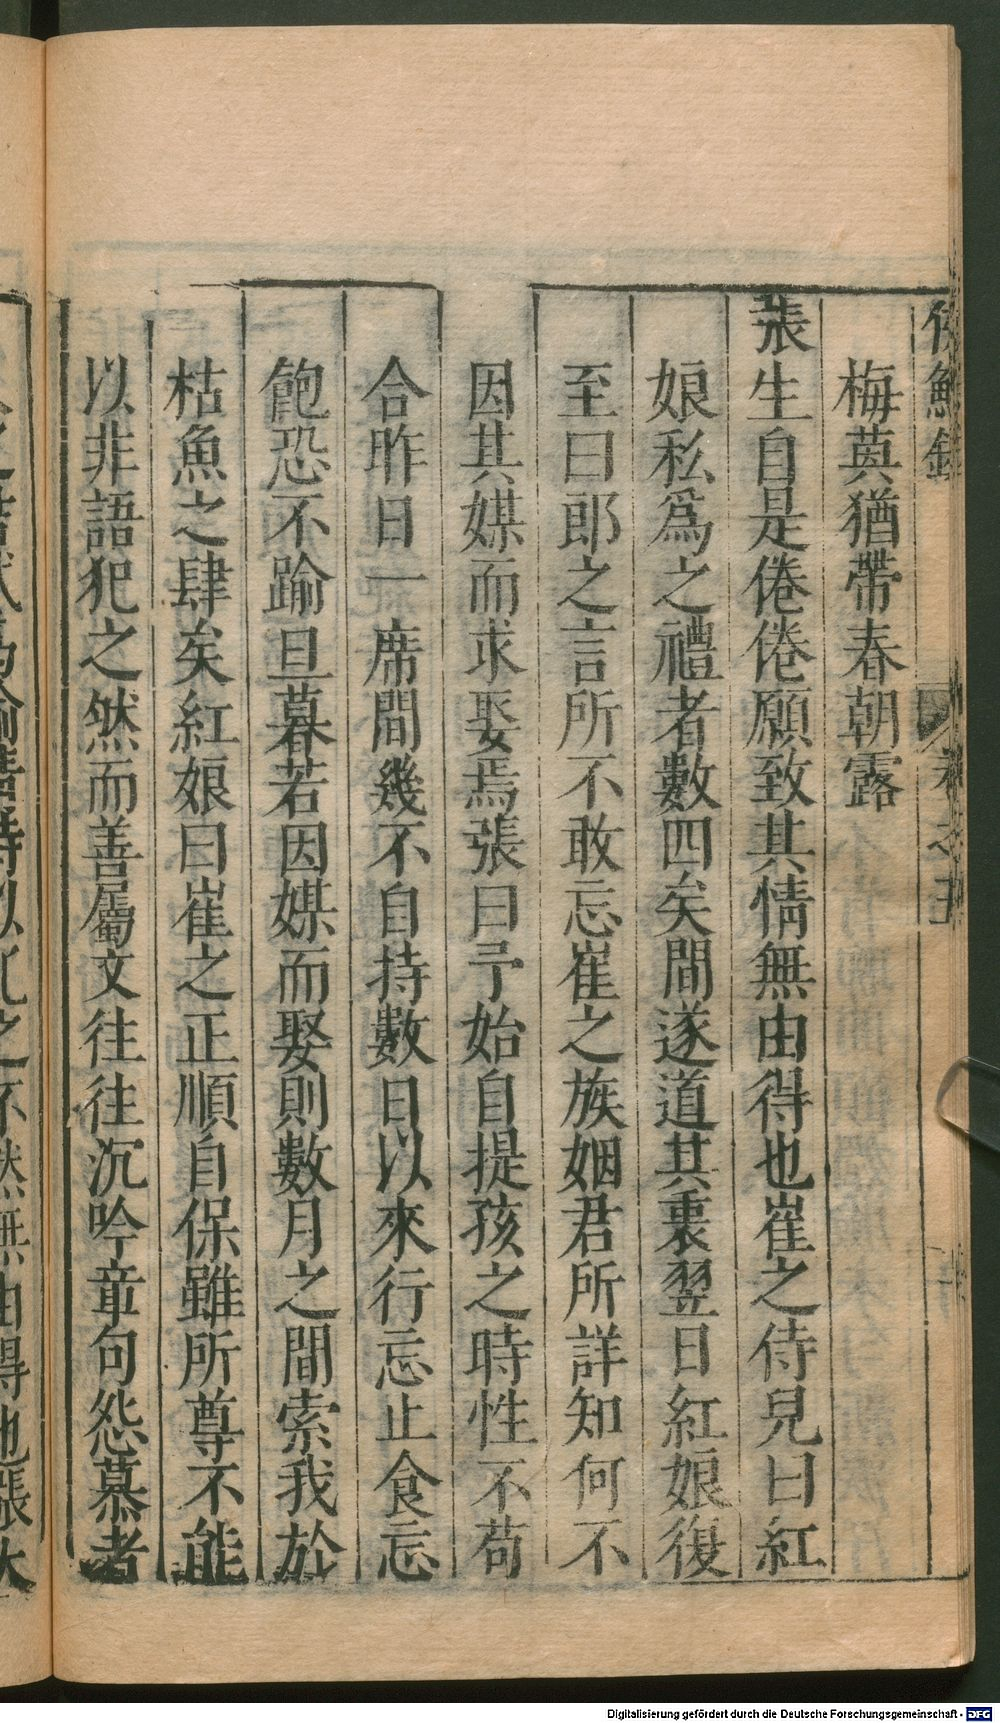 侯鯖錄 卷之五
梅英猶帶春朝露
張生自是倦倦願致其情無由得也崔之侍兒曰紅
娘私爲之禮者數四矣間遂道其衷翌日紅娘復
至曰郎之言所不敢忘崔之族姻君所詳知何不
因其媒而求娶焉張曰予始自提孩之時性不苟
合昨日一席間幾不自持數日以來行忘止食忘
飽恐不踰旦暮若因媒而娶則數月之間索我於
枯魚之肆矣紅娘曰崔之正順自保雖所尊不能
以非語犯之然而善屬文往往沉吟章句怨慕者
Digitalisierung gefördert durch die Deutsche Forschungsgemeinschaft - DFG